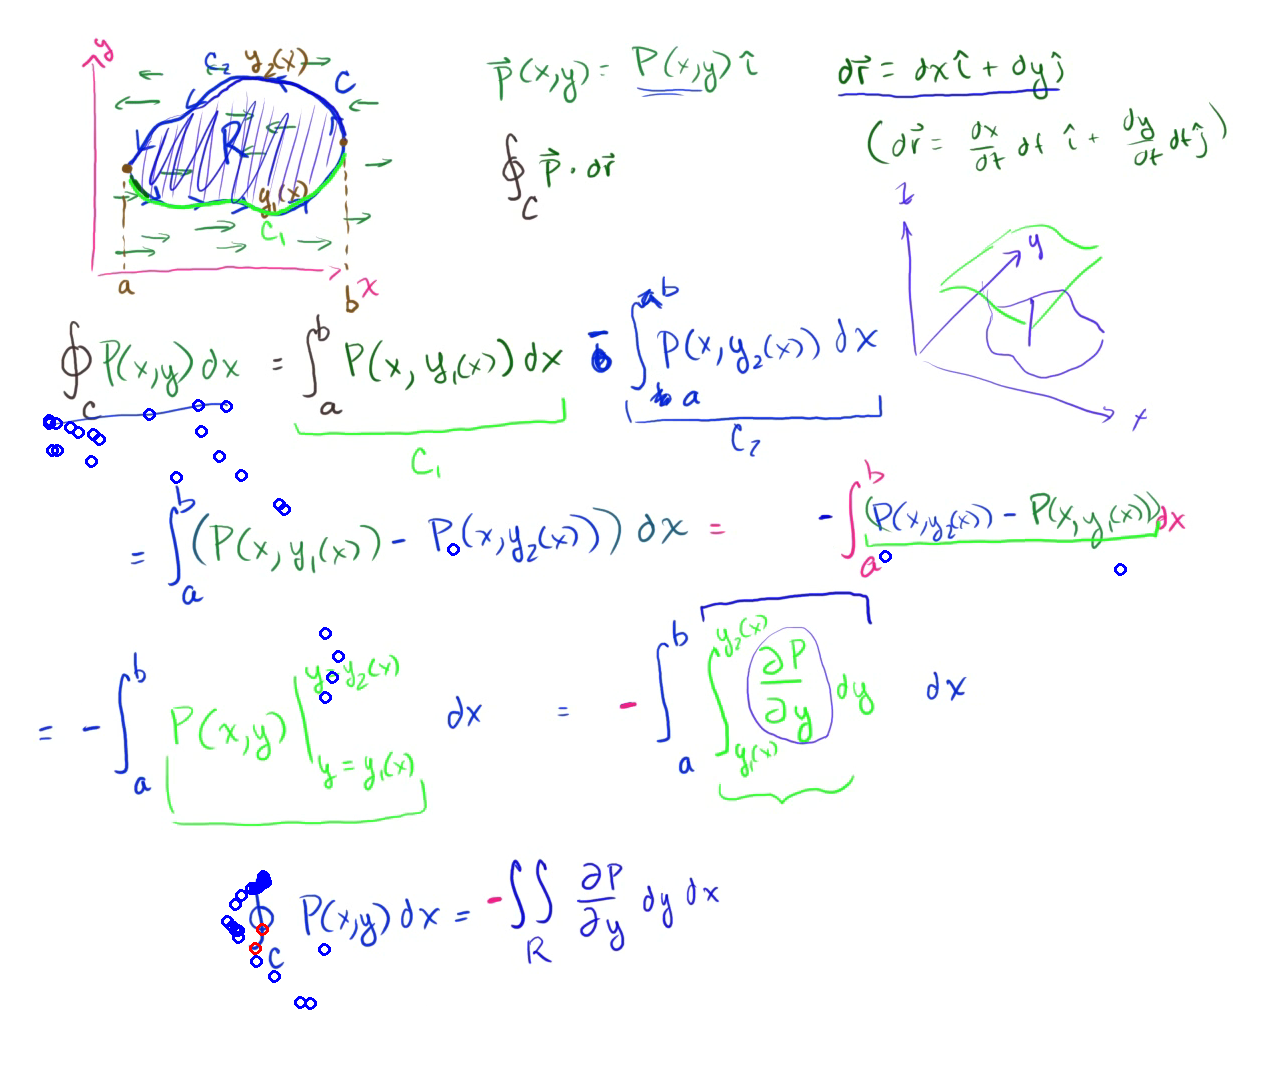 y
C₂ y₂(x)
C
R
y₁(x)
C₁
a
b x
P⃗(x,y) = P(x,y) î
dr⃗ = dx î + dy ĵ
(dr⃗ = dx/dt dt î + dy/dt dt ĵ)
∮_C P⃗ · dr⃗
z
y
x
∮_C P(x,y) dx = ∫_a^b P(x, y₁(x)) dx - ∫_a^b P(x, y₂(x)) dx
C₁ C₂
= ∫_a^b (P(x, y₁(x)) - P(x, y₂(x))) dx = - ∫_a^b (P(x, y₂(x)) - P(x, y₁(x))) dx
= - ∫_a^b P(x,y) |_{y = y₁(x)}^{y = y₂(x)} dx = - ∫_a^b ∫_{y₁(x)}^{y₂(x)} ∂P/∂y dy dx
∮_C P(x,y) dx = - ∬_R ∂P/∂y dy dx